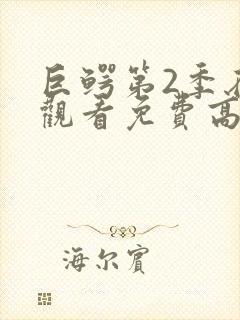 巨鳄第2季
觀看免費高
海尔賓